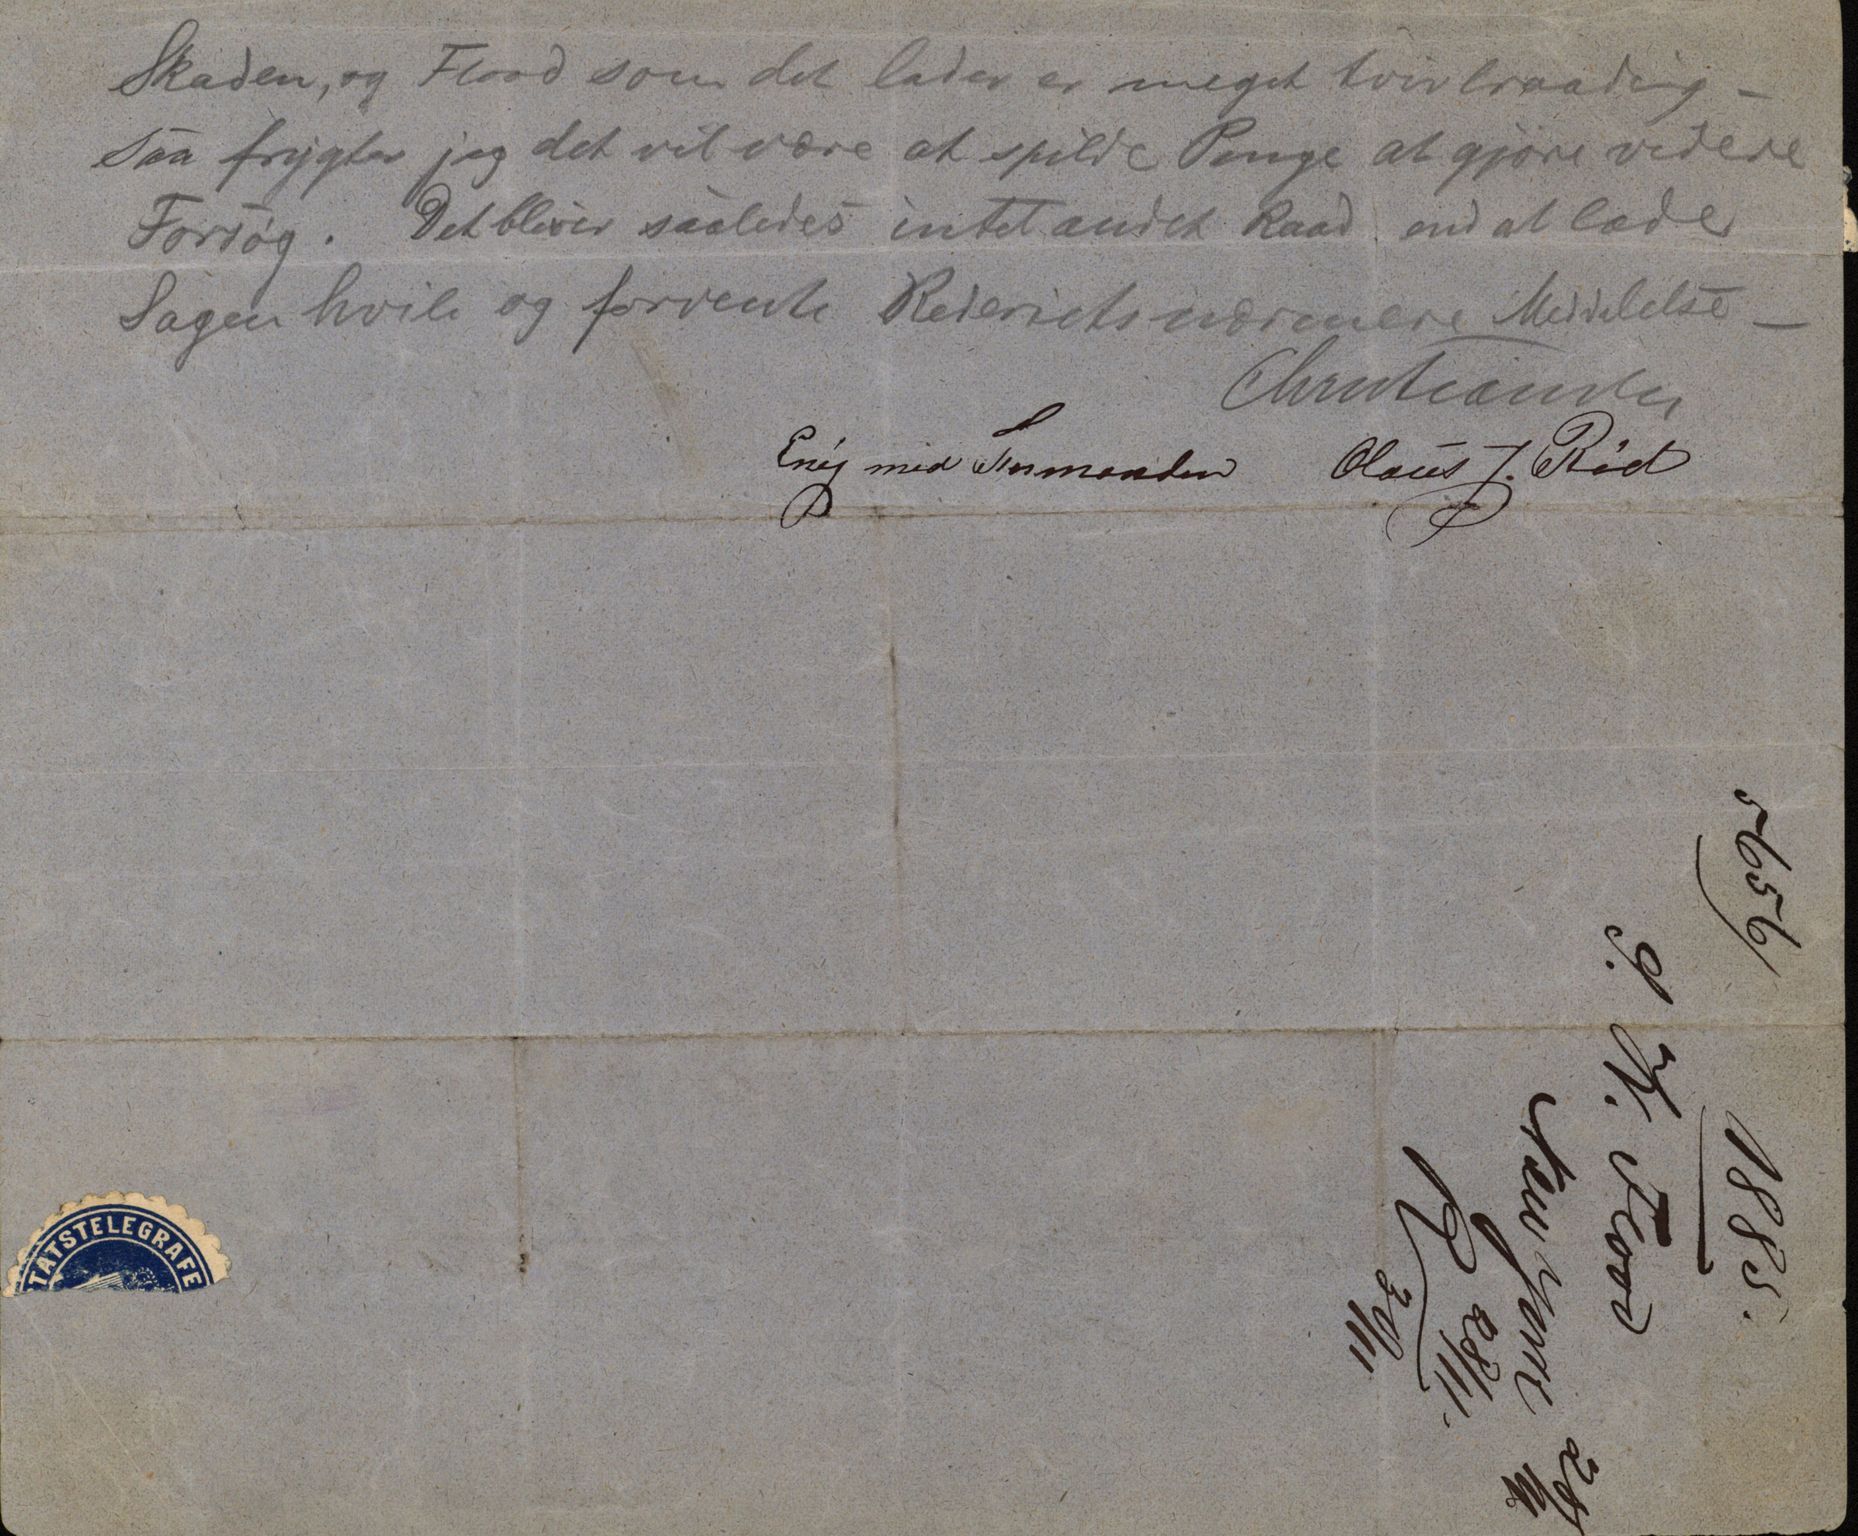 Skaden, og Flood som det lader er meget tvivlraadig —
saa frygter jeg det vil være at spilde Penge at gjøre videre
Forsøg. Det bliver saaledes intet andet Raad end at lade
Sagen hvile og forvente Rederiets nærmere Meddelelse —
Christiansen
Enig med Formanden Olaus J. Rød
5656
1885.
P. K. Flood
New York 28/11
R 28/11.
30/11
TATSTELEGRAFE